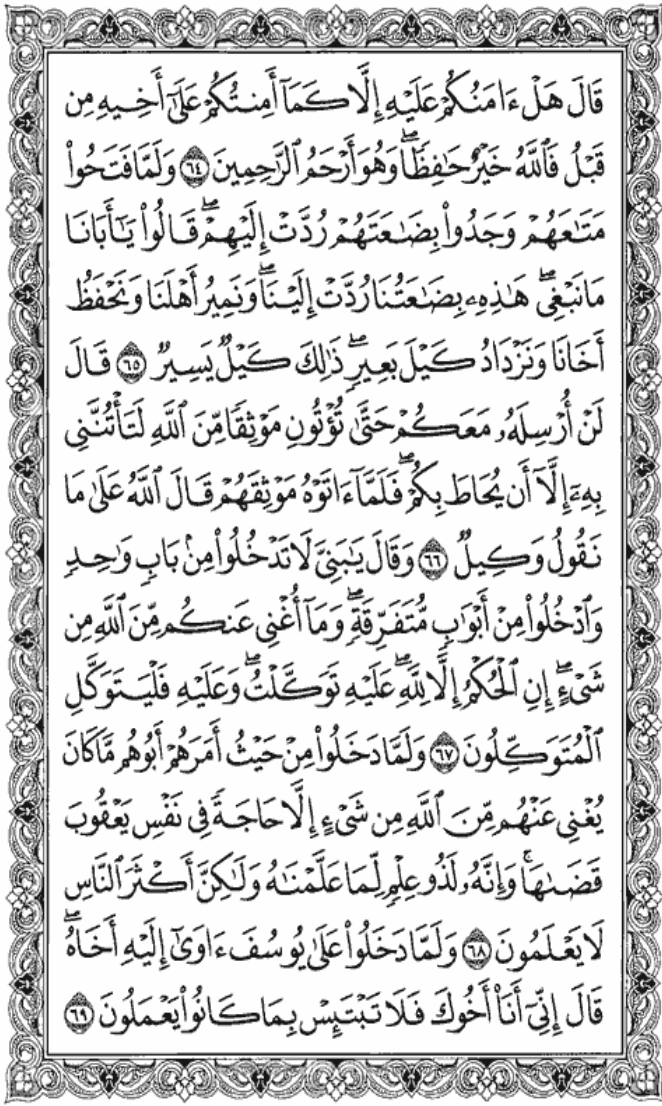 قَالَ هَلْ ءَامَنُكُمْ عَلَيْهِ إِلَّا كَمَآ أَمِنتُكُمْ عَلَىٰٓ أَخِيهِ مِن
قَبْلُ فَٱللَّهُ خَيْرٌ حَٰفِظًاۖ وَهُوَ أَرْحَمُ ٱلرَّٰحِمِينَ ٦٤ وَلَمَّا فَتَحُوا۟
مَتَٰعَهُمْ وَجَدُوا۟ بِضَٰعَتَهُمْ رُدَّتْ إِلَيْهِمْۖ قَالُوا۟ يَٰٓأَبَانَا
مَا نَبْغِىۖ هَٰذِهِۦ بِضَٰعَتُنَا رُدَّتْ إِلَيْنَاۖ وَنَمِيرُ أَهْلَنَا وَنَحْفَظُ
أَخَانَا وَنَزْدَادُ كَيْلَ بَعِيرٍۖ ذَٰلِكَ كَيْلٌ يَسِيرٌ ٦٥ قَالَ
لَنْ أُرْسِلَهُۥ مَعَكُمْ حَتَّىٰ تُؤْتُونِ مَوْثِقًا مِّنَ ٱللَّهِ لَتَأْتُنَّنِى
بِهِۦٓ إِلَّآ أَن يُحَاطَ بِكُمْۖ فَلَمَّآ ءَاتَوْهُ مَوْثِقَهُمْ قَالَ ٱللَّهُ عَلَىٰ مَا
نَقُولُ وَكِيلٌ ٦٦ وَقَالَ يَٰبَنِىَّ لَا تَدْخُلُوا۟ مِنۢ بَابٍ وَٰحِدٍ
وَٱدْخُلُوا۟ مِنْ أَبْوَٰبٍ مُّتَفَرِّقَةٍۖ وَمَآ أُغْنِى عَنكُم مِّنَ ٱللَّهِ مِن
شَىْءٍۖ إِنِ ٱلْحُكْمُ إِلَّا لِلَّهِۖ عَلَيْهِ تَوَكَّلْتُۖ وَعَلَيْهِ فَلْيَتَوَكَّلِ
ٱلْمُتَوَكِّلُونَ ٦٧ وَلَمَّا دَخَلُوا۟ مِنْ حَيْثُ أَمَرَهُمْ أَبُوهُم مَّا كَانَ
يُغْنِى عَنْهُم مِّنَ ٱللَّهِ مِن شَىْءٍ إِلَّا حَاجَةً فِى نَفْسِ يَعْقُوبَ
قَضَىٰهَاۚ وَإِنَّهُۥ لَذُو عِلْمٍ لِّمَا عَلَّمْنَٰهُ وَلَٰكِنَّ أَكْثَرَ ٱلنَّاسِ
لَا يَعْلَمُونَ ٦٨ وَلَمَّا دَخَلُوا۟ عَلَىٰ يُوسُفَ ءَاوَىٰٓ إِلَيْهِ أَخَاهُۖ
قَالَ إِنِّىٓ أَنَا۠ أَخُوكَ فَلَا تَبْتَئِسْ بِمَا كَانُوا۟ يَعْمَلُونَ ٦٩